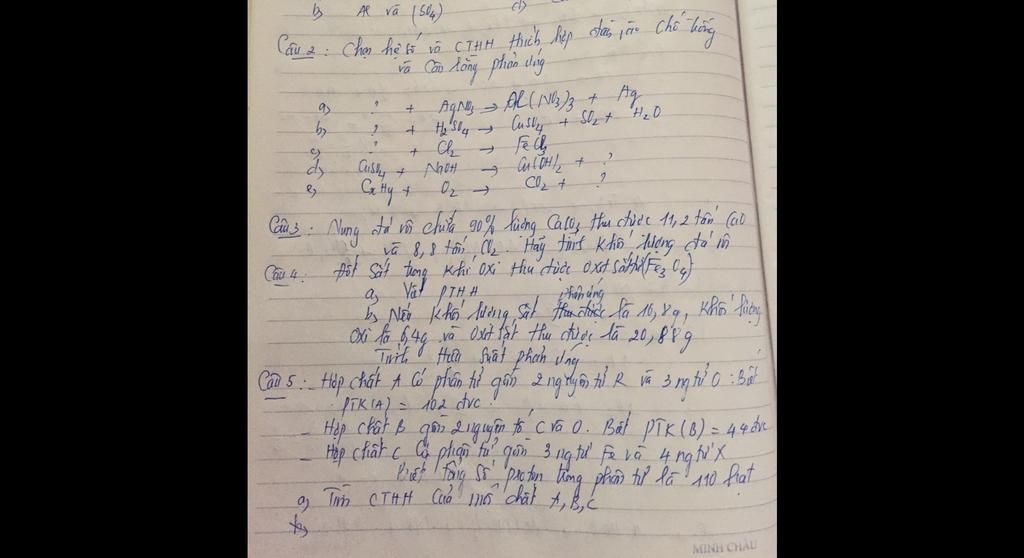 b) Al và (SO4) d)
Câu 2 : Chọn hệ số và CTHH thích hợp chỗ trống
và cân bằng phản ứng
a) ? + AgNO3 → Al(NO3)3 + Ag
b) ? + H2SO4 → CuSO4 + SO2 + H2O
c) ? + Cl2 → FeCl3
d) CuSO4 + NaOH → Cu(OH)2 + ?
e) CxHy + O2 → CO2 + ?
Câu 3 : Nung đá vôi chứa 90% lượng CaCO3 thu được 11,2 tấn CaO
và 8,8 tấn CO2. Hãy tính khối lượng đá vôi
Câu 4 : Đốt sắt trong khí oxi thu được oxit sắt từ (Fe3O4)
a) Viết PTHH
phản ứng
b) Nếu khối lượng sắt là 16,8g, khối lượng
oxi là 6,4g và oxit sắt thu được là 20,88g
Tính hiệu suất phản ứng
Câu 5 : - Hợp chất A có phân tử gồm 2 nguyên tử R và 3 ng tử O. Biết
PTK(A) = 102 đvc
- Hợp chất B gồm 2 nguyên tố C và O. Biết PTK(B) = 44 đvc
- Hợp chất C có phân tử gồm 3 ng tử Fe và 4 ng tử X
biết tổng số proton trong phân tử là 110 hạt
a) Tìm CTHH của mỗi chất A, B, C
b)
MINH CHÂU